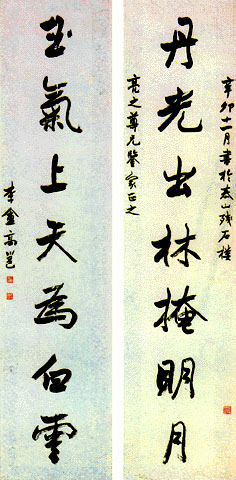 辛卯十二月書於泰山殘石樓
丹光出林掩明月
亮之尊兄鑒家正之
玉氣上天為白雲
李盦高邕